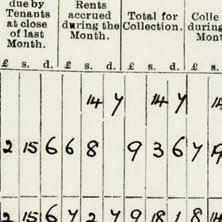 due by
Tenants
at close
of last
Month.
Rents
accrued
during the
Month.
Total for
Collection.
Colle
during
Mont
£ s. d. £ s. d. £ s. d. £ s.
14 7 14 7
2 15 6 6 8 9 3 6 7
2 15 6 7 2 7 9 18 1 8